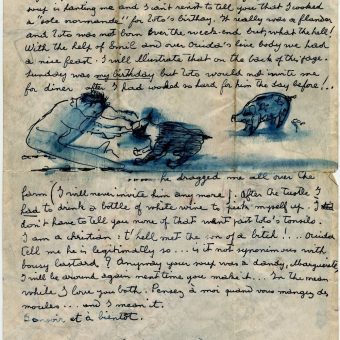 soup is panting me and I can't resist to tell you that I cooked
a "sole normande" for Toto's birthday. It really was a flounder
and Toto was not born over the week-end but what the hell!
With the help of basil and over Ouida's live body we had
a nice feast. I will illustrate that on the back of the page.
Sunday was my birthday but Toto would not invite me
for diner after I had worked so hard for him the day before!..
..... he dragged me all over the
farm (I will never invite him any more!). After the tussle I
had to drink a bottle of white wine to pick myself up. I
don't have to tell you none of that went past Toto's tonsils.
I am a christian: t'hell met the son of a bitch!... Ouida
tell me he is legitimately so.... is it not synonimous with
bousy bastard? Anyway your soup was a dandy, Marguerite,
I will be around again next time you make it... In the mean
while I love you both. Pensez à moi quand vous mangez des
moules... and I mean it.
Bonsoir et à bientôt.